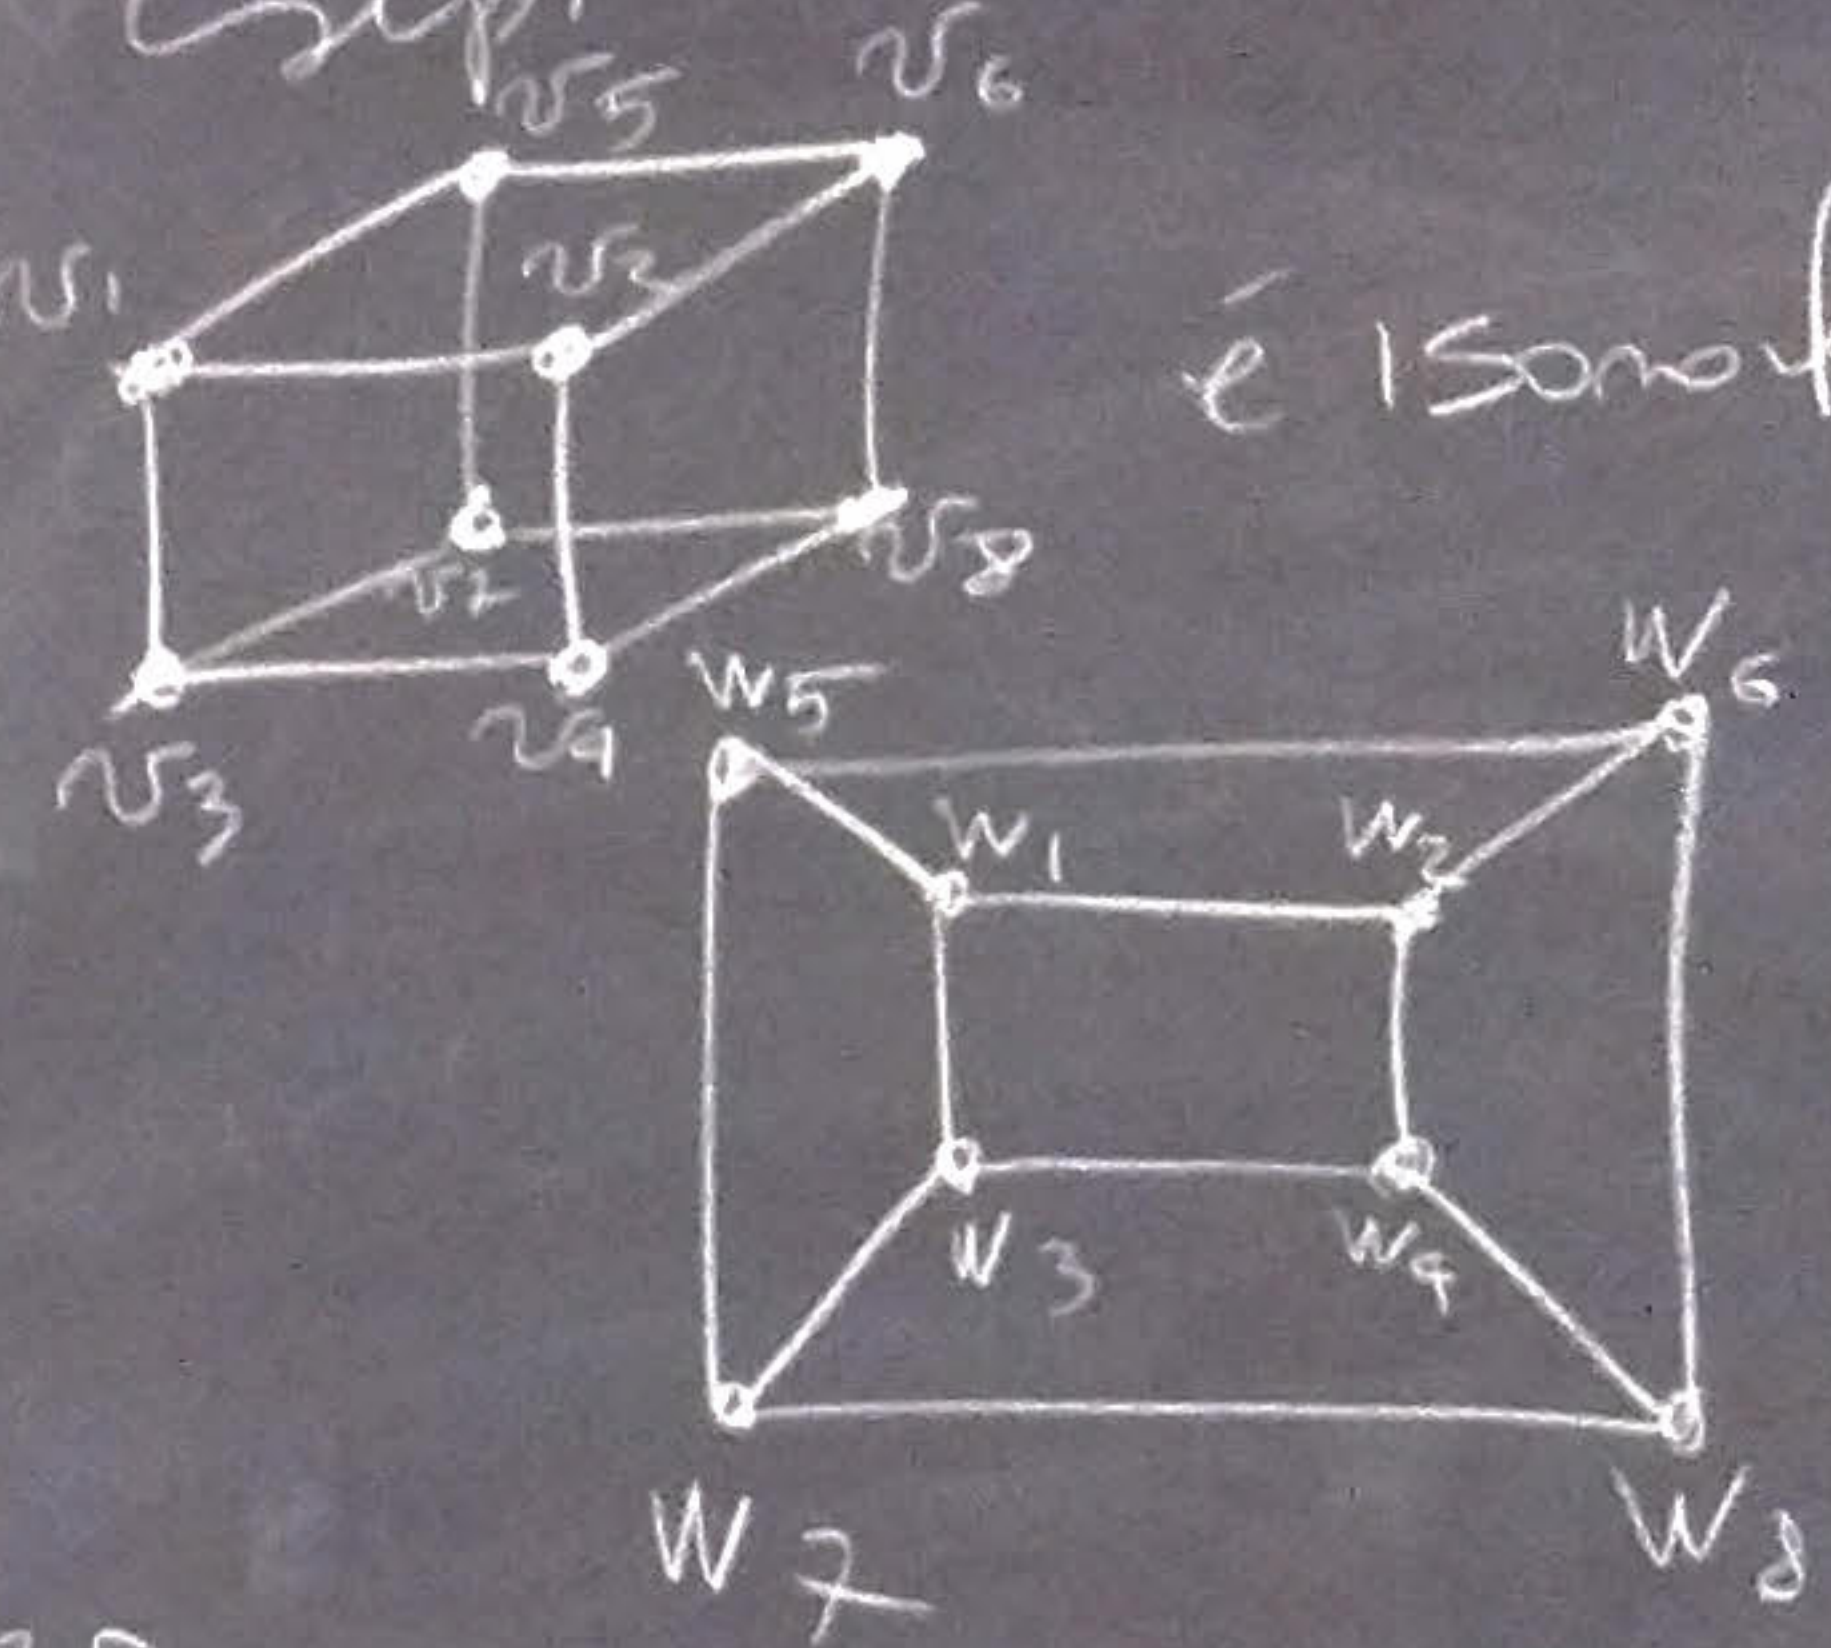 v5 v6
v1 v2
é isomorf
v7 v8
v3 v4
w5 w6
w1 w2
w3 w4
w7 w8